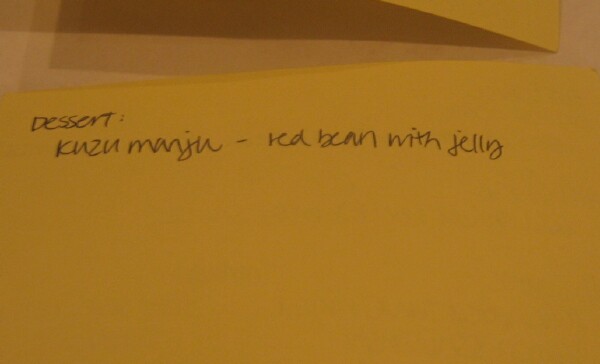 Dessert:
Kuzu manju - red bean with jelly